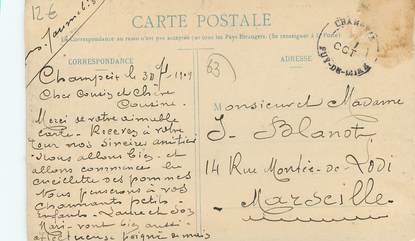 12€
CARTE POSTALE
La Correspondance au recto n'est pas acceptée par tous les Pays Étrangers. (Se renseigner à la Poste)
CORRESPONDANCE
ADRESSE
CHAMPEIX
OCT
PUY-DE-DÔME
63
Champeix le 30 1909
Cher Cousin et Chère
Cousine.
Merci de votre aimable
carte. Recevez à votre
tour nos sincères amitiés
Nous allons bien et
allons commencer la
cueillette des pommes
Nous pensons à vos
charmants petits
Enfants. Laure et son
Mari vont bien aussi
affectueuse poignée de mains
Monsieur et Madame
J. Blanot
14 Rue Montée-de-Lodi
Marseille